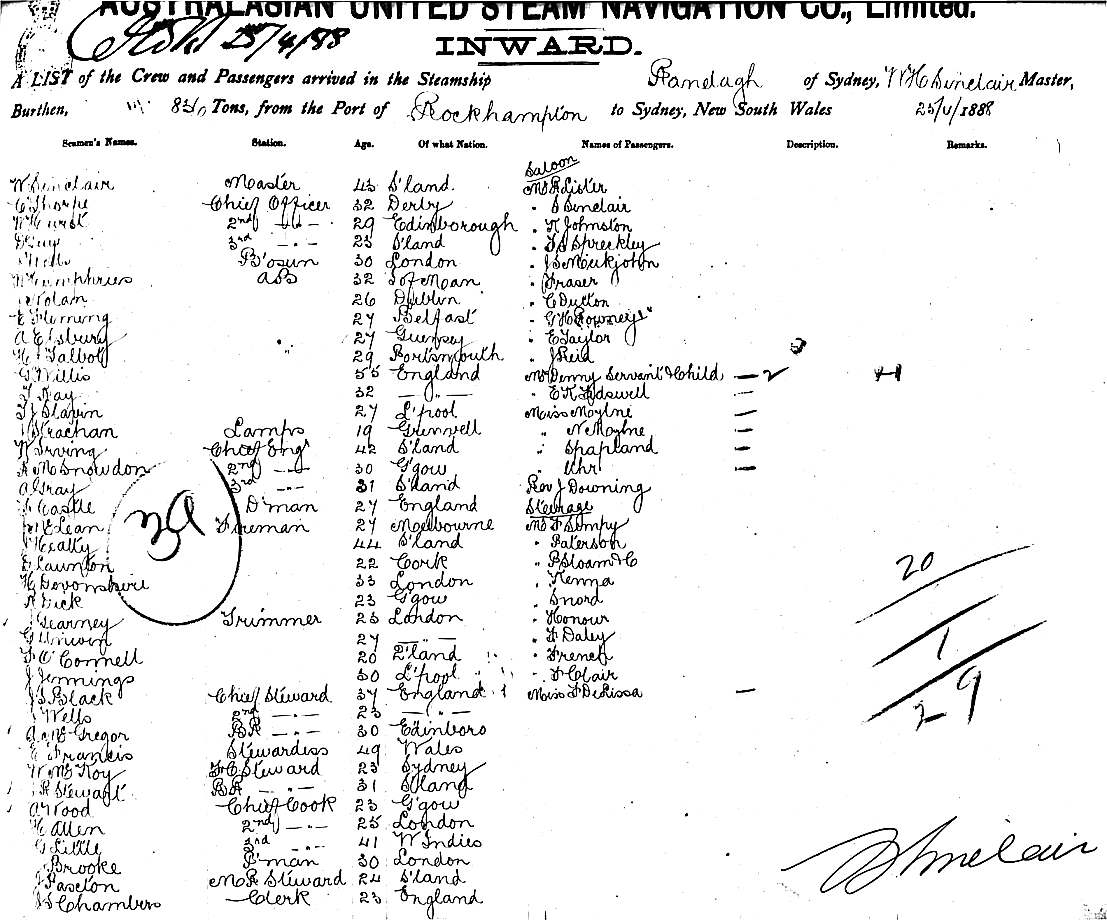 AUSTRALASIAN UNITED STEAM NAVIGATION CO., Limited.
25/4/88
INWARD.
A LIST of the Crew and Passengers arrived in the Steamship Ranelagh of Sydney, W H Sinclair Master,
Burthen, Tons, from the Port of Rockhampton to Sydney, New South Wales 25/4/1888
Seamen's Names. Station. Age. Of what Nation. Names of Passengers. Description. Remarks.
Saloon
W Sinclair Master 43 S'land. Mr R Lister
C Thorpe Chief Officer 32 Derby " S Sinclair
W Hurst 2nd —"— 29 Edinborough " K Johnston
D Guy 3rd —"— 23 S'land " Spreckley
Wells B'osun 30 London " J S Meikjohn
W Humphries AB 32 I of Man " Fraser
Nolan 26 Dublin " C Dutton
E Fleming 27 Belfast " G H Rowney
A Elsbury 27 Guernsey " E Taylor
H Talbot 29 Portsmouth " J Reid
G Willis 55 England Mr Denny Servant & Child — 2
T Kay 32 —"— " E K Tidswell
T J Slavin 27 L'pool Miss Moylne —
J Strachan Lamps 19 " N Moylne —
W Irving Chief Engr 42 S'land " Shapland —
R McSnowdon 2nd —"— 30 G'gow " Uhr —
A Gray 3rd —"— 31 S'land Rev J Downing
F Castle D'man 27 England Steerage
McLean Fireman 27 Melbourne Mr F Dempy
J Healty 44 S'land " Paterson
D Launton 22 Cork " P Sloam & C
H Devonshire 33 London " Kenna
R Dick 23 G'gow " Snord
J Gearney Trimmer 23 London " Honour
G Unwin 27 —"— " F Daley
F O'Connell 20 " French
J Jennings 30 L'pool " F Clair
J S Black Chief Steward 37 England Miss F DeRissa —
J Wells 2nd —"— 23 —"—
A McGregor BR —"— 30 Edinboro
E Francis Stewardess 49 Wales
W McKoy F C Steward 23 Sydney
R Stewart BR —"— 31 S'land
A Wood Chief Cook 23 G'gow
H Allen 2nd —"— 25 London
G Little 3rd —"— 41 W Indies
Brooke P'man 30 London
J Paseton M R Steward 24 S'land
J S Chambers Clerk 23 England
20
1
29
Sinclair